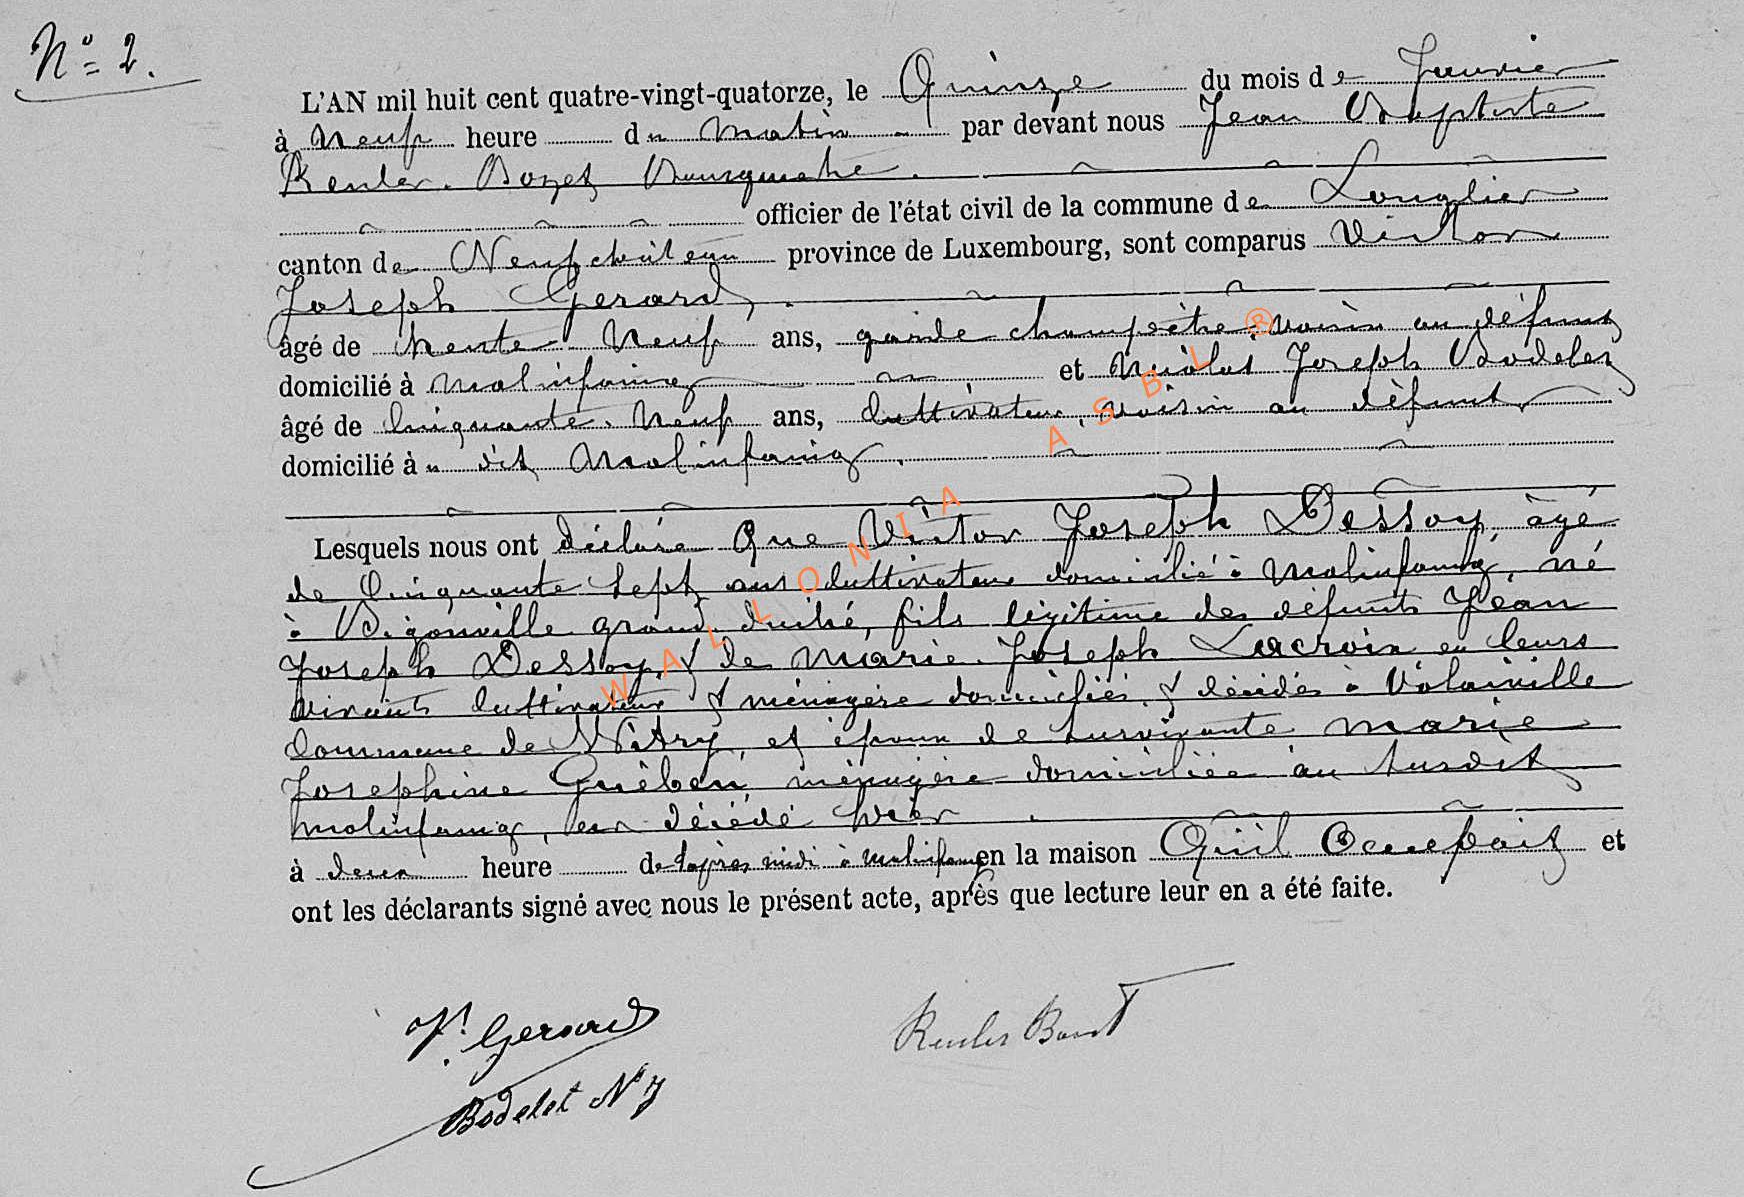 N° 2.
L'AN mil huit cent quatre-vingt-quatorze, le Quinze du mois de Janvier
à Neuf heure du Matin par devant nous Jean Baptiste
Reuler Bourgmestre.
officier de l'état civil de la commune de Longlier
canton de Neufchâteau province de Luxembourg, sont comparus Victor
Joseph Gerard,
âgé de trente Neuf ans, garde champêtre, voisin au défunt
domicilié à Molinfaing et Nicolas Joseph Bodelet
âgé de Cinquante Neuf ans, Cultivateur, voisin au défunt
domicilié à dit Molinfaing.
Lesquels nous ont déclaré Que Victor Joseph Dessoy, âgé
de Cinquante Sept ans Cultivateur domicilié à Molinfaing, né
à Bigonville grand duché, fils légitime des défunts Jean
Joseph Dessoy & de Marie Joseph Lacroix en leurs
vivants Cultivateur & ménagère domiciliés & décédés à Volaiville
Commune de Witry, et époux de survivante Marie
Josephine Guèben ménagère domiciliée au susdit
Molinfaing, est décédé hier
à deux heure de l'après midi à Molinfaing en la maison Qu'il Occupait et
ont les déclarants signé avec nous le présent acte, après que lecture leur en a été faite.
V. Gerard
Reuler
Bodelet N J
WALLONIA ASBL ®